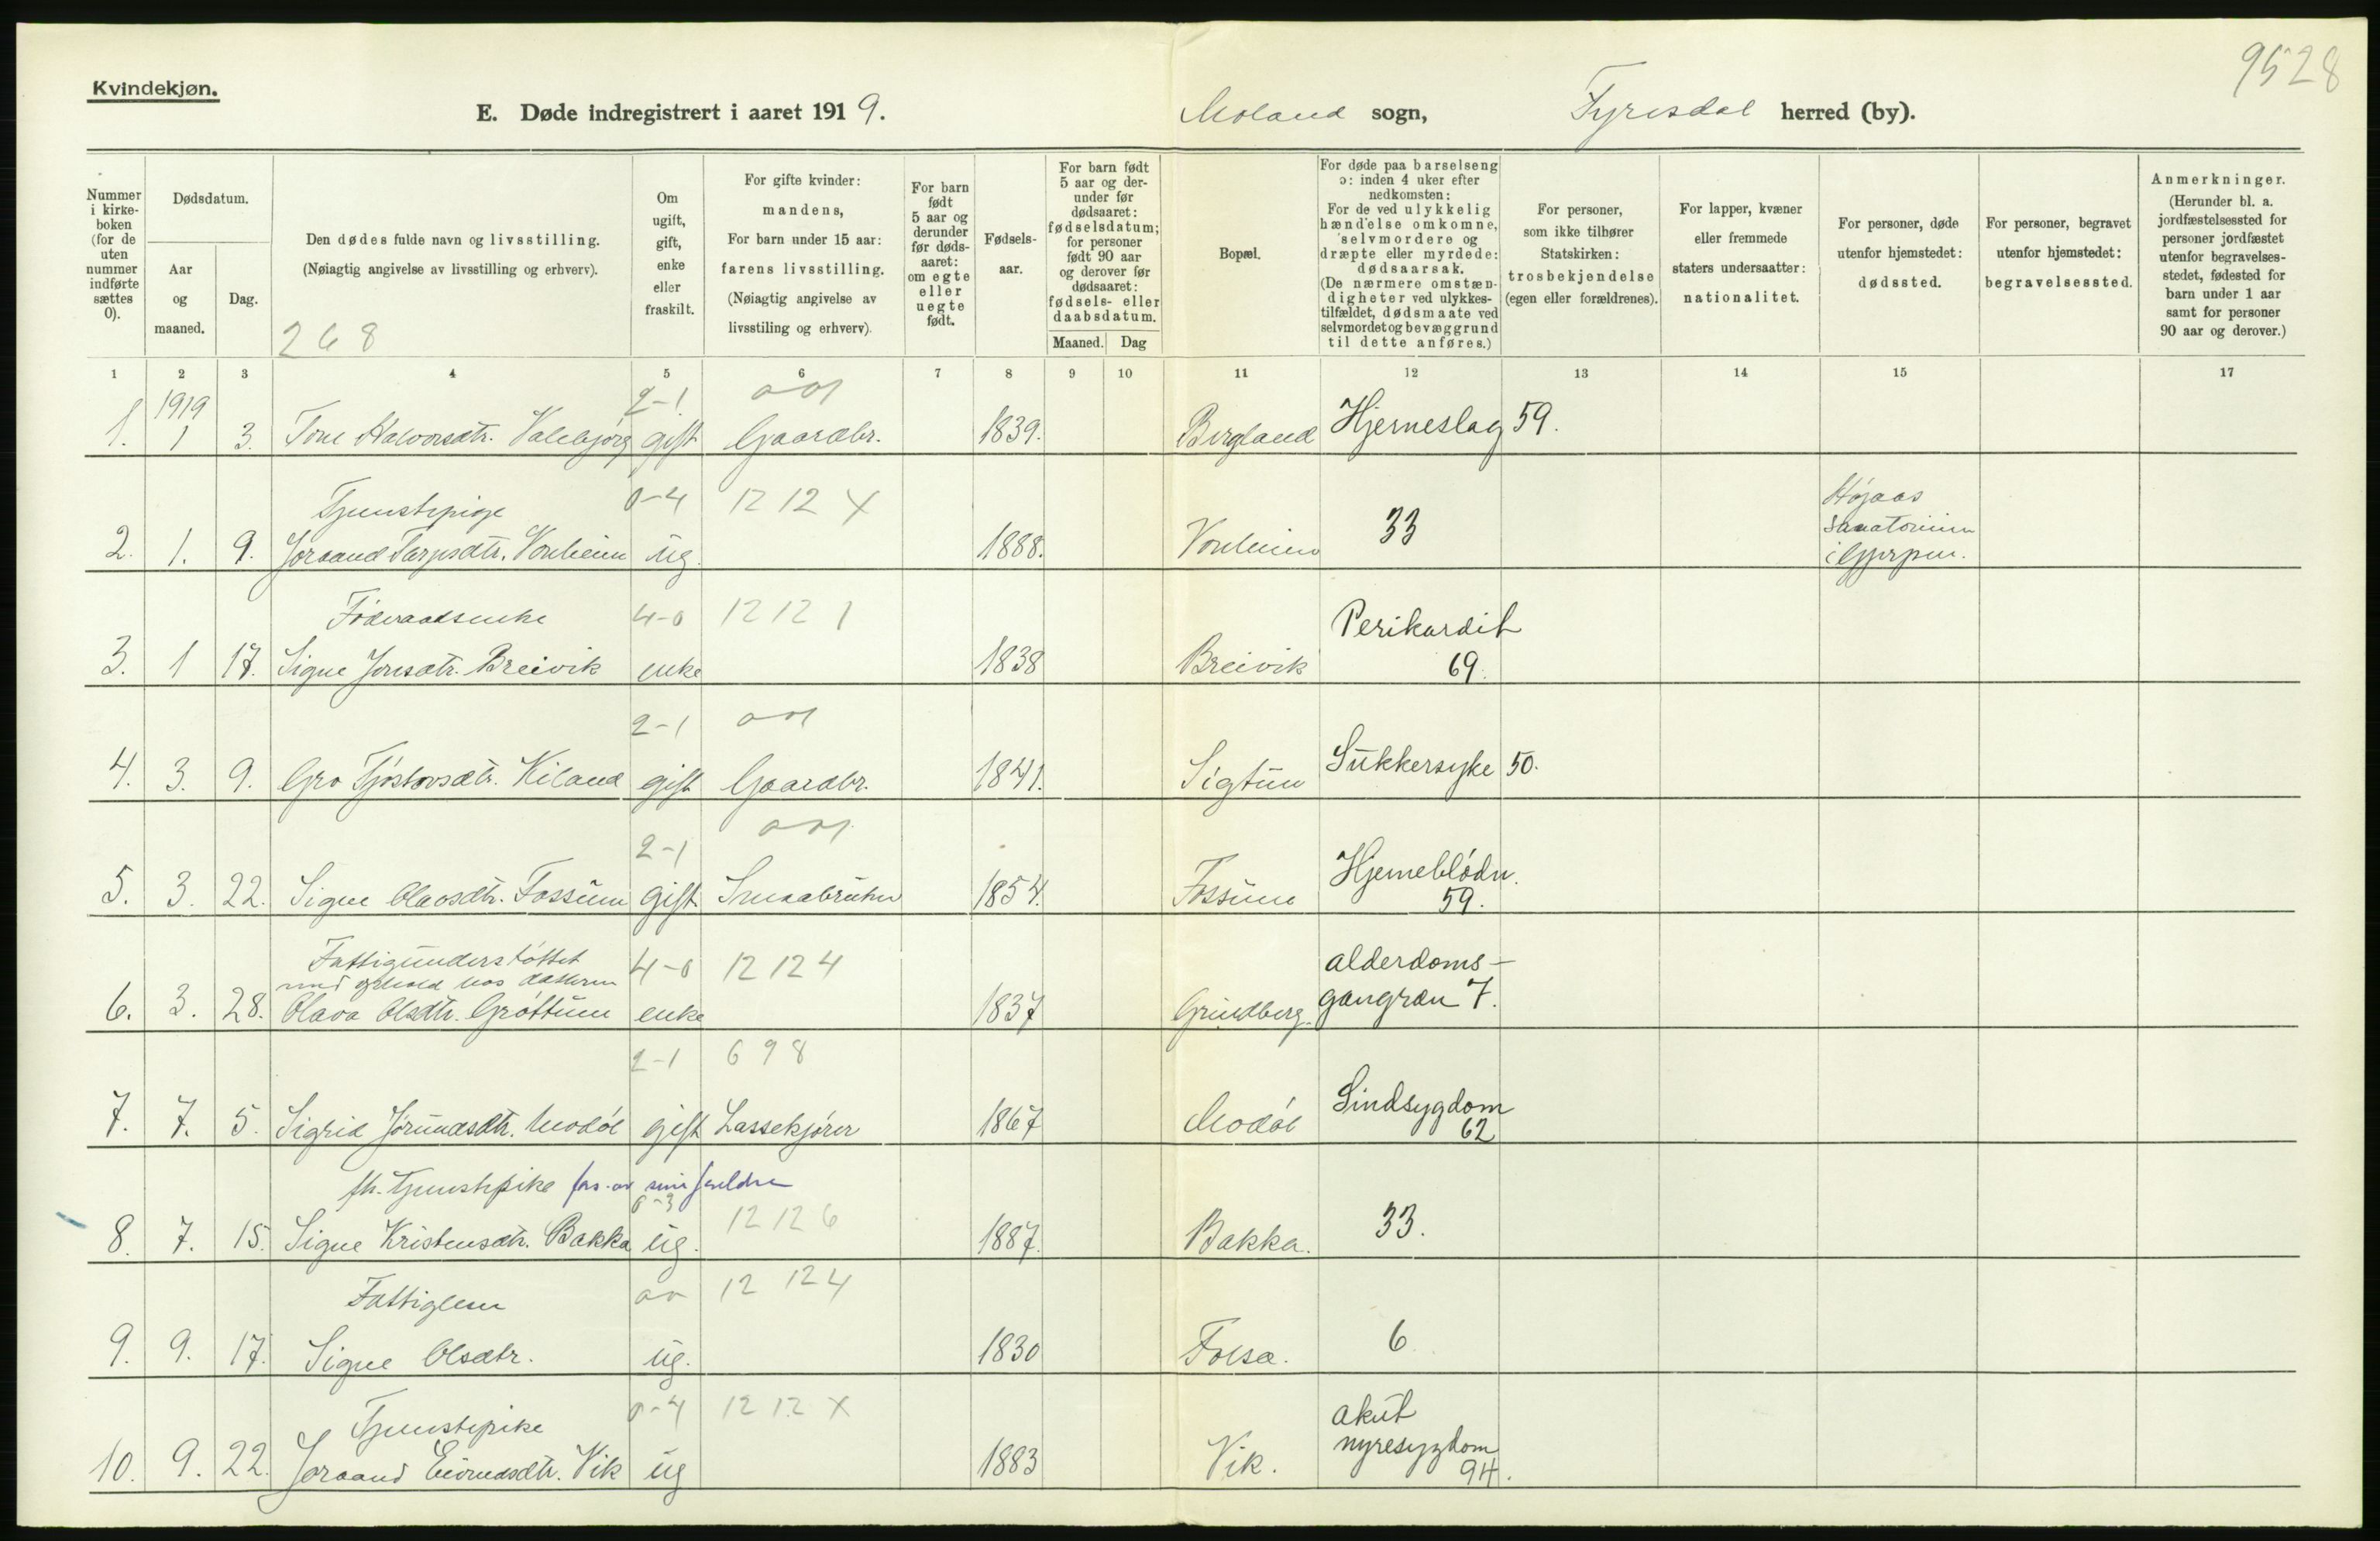 9528
Kvindekjøn.
E. Døde indregistrert i aaret 1919. Moland sogn, Fyresdal herred (by).
Nummer i kirkeboken (for de uten nummer indførte sættes 0).
Dødsdatum.
Aar og maaned.
Dag.
Den dødes fulde navn og livsstilling.
(Nøiagtig angivelse av livsstilling og erhverv).
268
Om ugift, gift, enke eller fraskilt.
For gifte kvinder: mandens,
For barn under 15 aar: farens livsstilling.
(Nøiagtig angivelse av livsstiling og erhverv).
For barn født 5 aar og derunder før dødsaaret: om egte eller uegte født.
Fødselsaar.
For barn født 5 aar og derunder før dødsaaret: fødselsdatum; for personer født 90 aar og derover før dødsaaret: fødsels- eller daabsdatum.
Maaned. Dag
Bopæl.
For døde paa barselseng ɔ: inden 4 uker efter nedkomsten:
For de ved ulykkelig hændelse omkomne, selvmordere og dræpte eller myrdede: dødsaarsak.
(De nærmere omstændigheter ved ulykkestilfældet, dødsmaate ved selvmordet og bevæggrund til dette anføres.)
For personer, som ikke tilhører Statskirken: trosbekjendelse (egen eller forældrenes).
For lapper, kvæner eller fremmede staters undersaatter: nationalitet.
For personer, døde utenfor hjemstedet: dødssted.
For personer, begravet utenfor hjemstedet: begravelsessted.
Anmerkninger.
(Herunder bl. a. jordfæstelsessted for personer jordfæstet utenfor begravelsesstedet, fødested for barn under 1 aar samt for personer 90 aar og derover.)
1 2 3 4 5 6 7 8 9 10 11 12 13 14 15 17
1919 2-1
1. 1 3. Tone Halvorsdtr. Valebjørg gift Gaardbr. 1839. Birgland Hjerneslag 59.
Tjenestepige 0-4 12 12 X Højaas
Sanatorium
2. 1. 9. Joraand Tarjeisdtr. Vonheim ug. 1888. Vonheim 33 i Gjerpen.
Føderaadsenke 4-0 12 12 1 Perikardit
3. 1 17. Signe Jonsdtr. Breivik enke 1838 Breivik 69.
2-1
4. 3. 9. Gro Tjøstovsdtr. Kiland gift Gaardbr. 1841. Sigtun Sukkersyke 50.
2-1 Hjerneblødn.
5. 3. 22. Signe Olavsdtr. Fossum gift Smaabruker 1854. Fossum 59.
Fattigunderstøttet 4-0 12 12 4 alderdoms-
med ophold hos datteren
6. 3. 28. Olava Olsdtr. Grøttum enke 1837 Grindberg. gangræn 7.
2-1 6 9 8 Sindsygdom
7. 7. 5. Sigrid Jørundsdtr. Modøl gift Lassekjører 1867 Modøl 62
fh. tjenestepike fors. av sine foreldre
0-3 12 12 6
8. 7. 15. Signe Kristensdtr. Bakka ug. 1887. Bakka. 33.
Fattiglem 12 12 4
9. 9. 17. Signe Olsdtr. ug. 1830 Folsæ. 6
Tjenestepike 0-4 12 12 X akut
nyresygdom
10. 9. 22. Joraand Eivindsdtr. Vik ug 1883 Vik. 94.